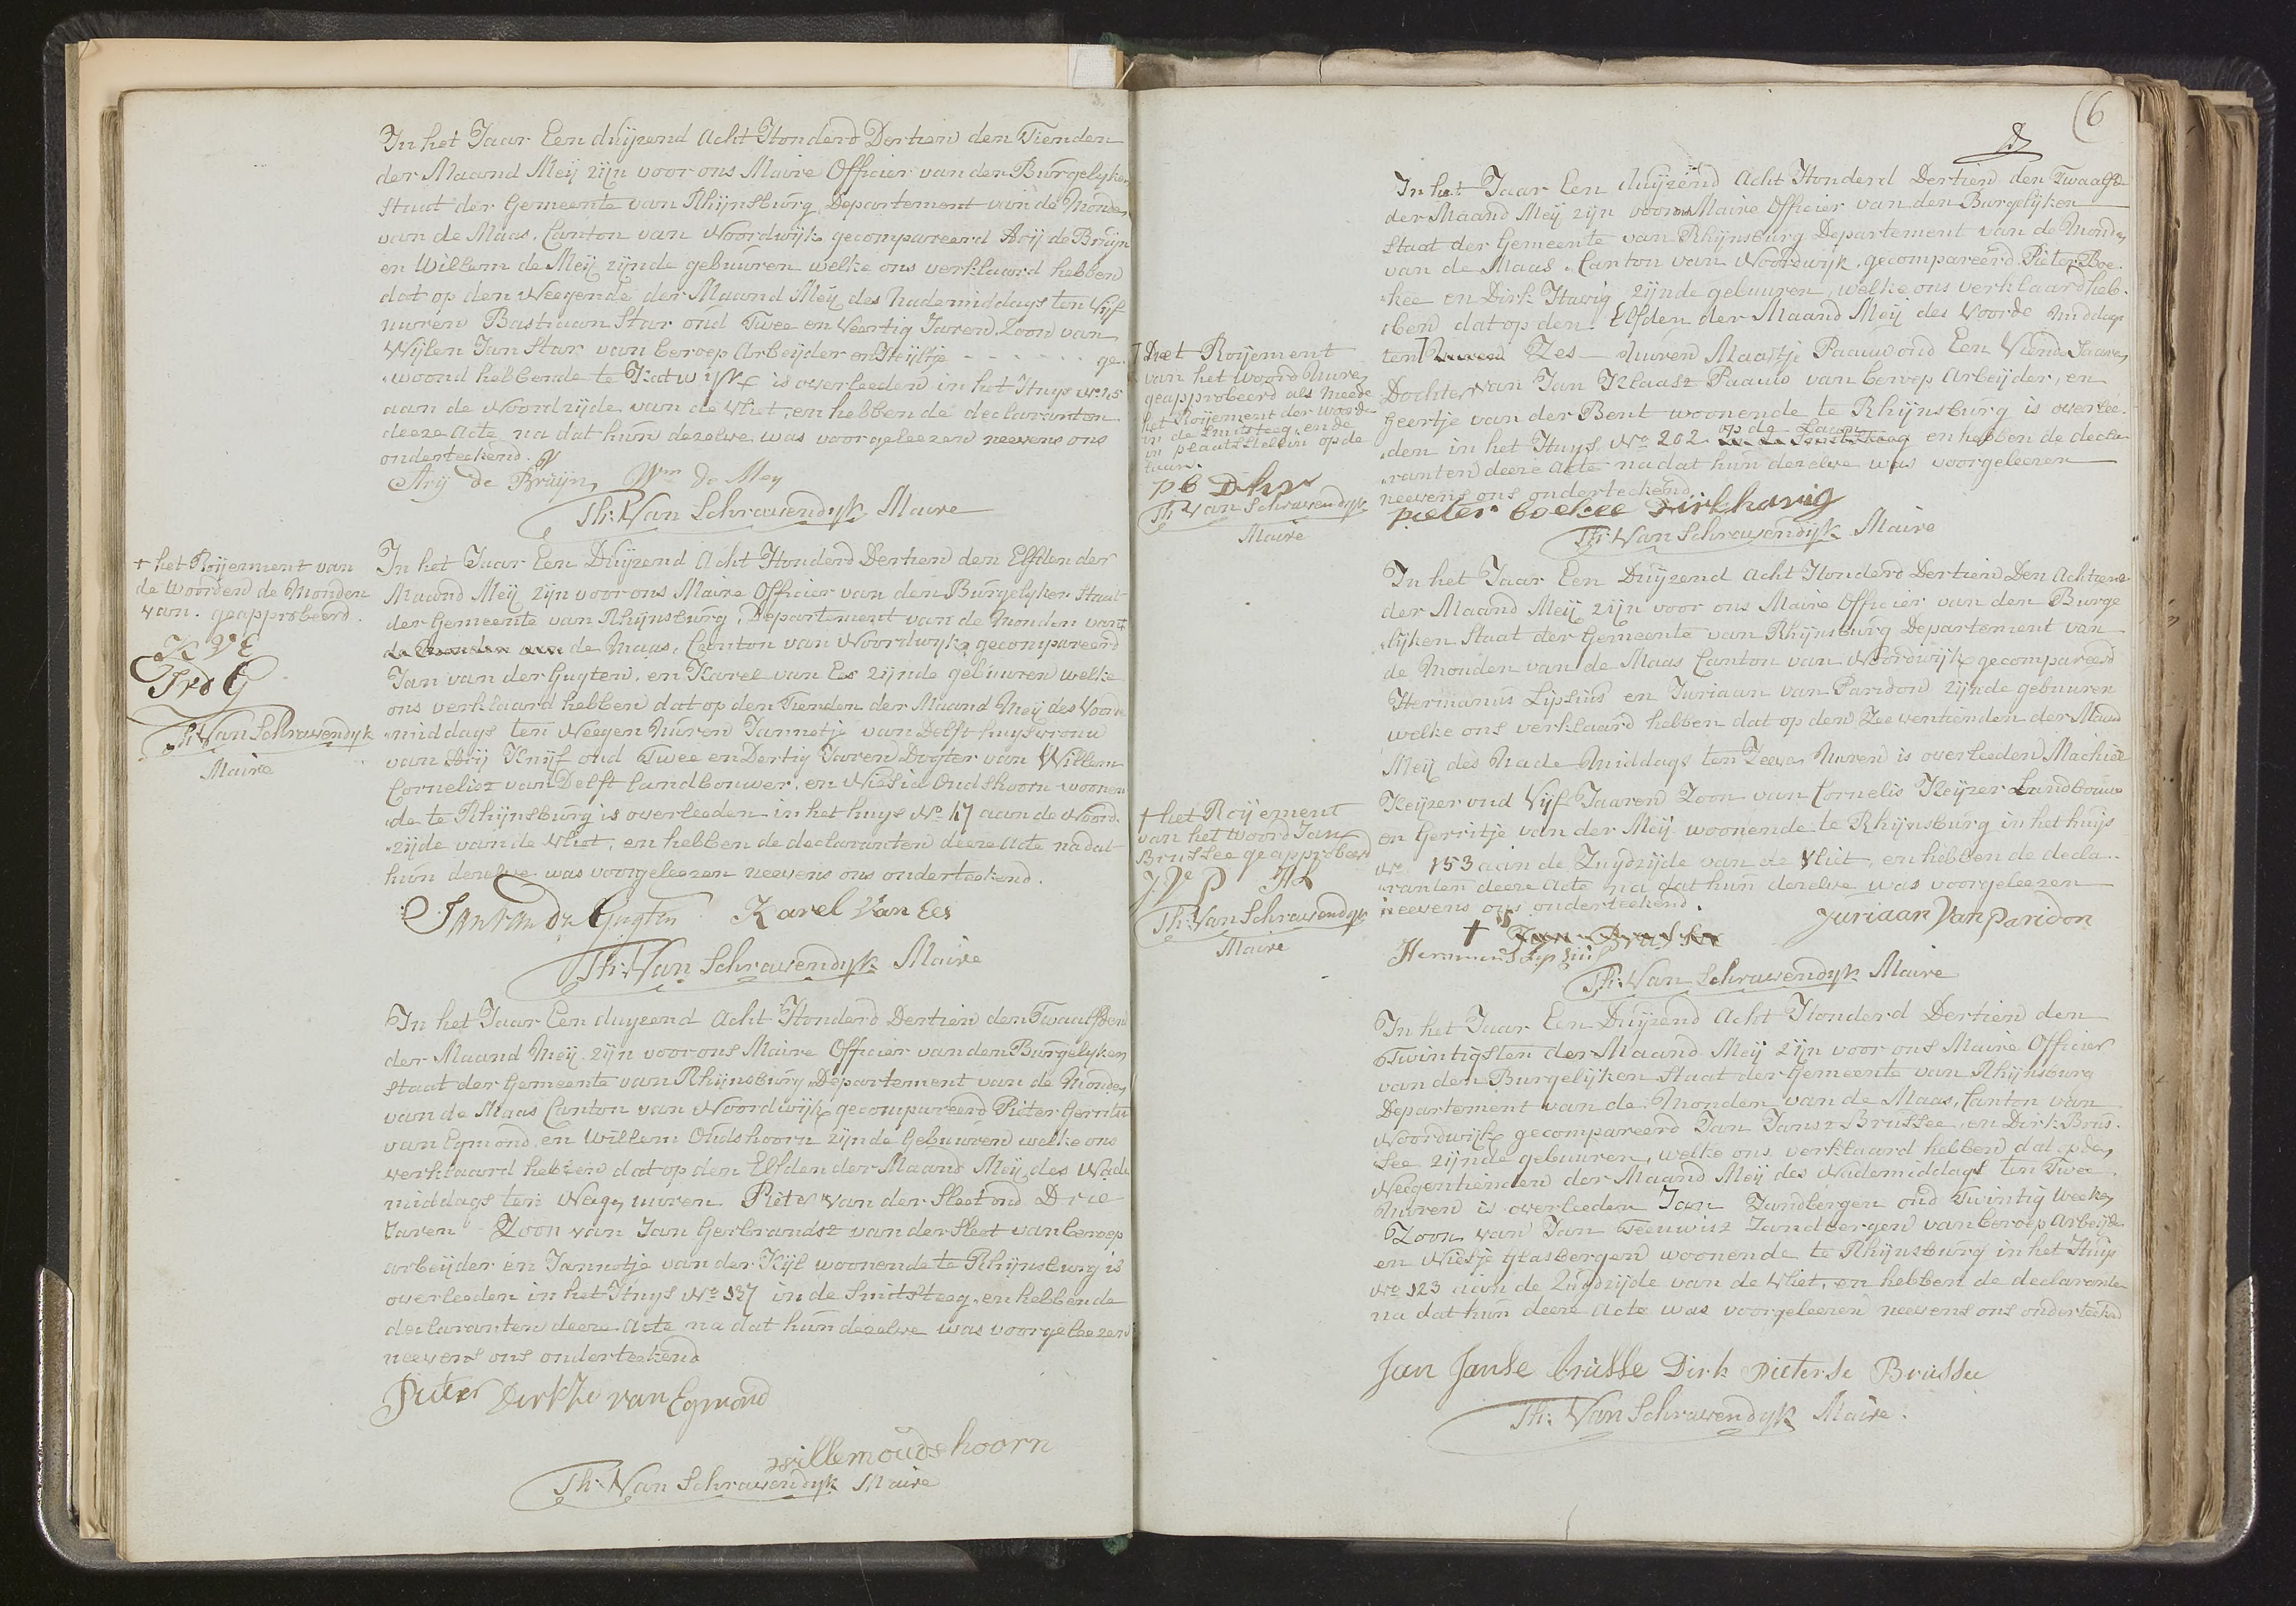 In het Jaar Een duijzend Acht Honderd Dertien den Tienden
der Maand Meij zijn voor ons Maire Officier van den Burgelyken
Staat der Gemeente van Rhijnsburg, Departement van de Monden
van de Maas, Canton van Noordwijk gecompareerd Arij de Bruijn
en Willem de Meij zijnde gebuuren welke ons verklaard hebben
dat op den Neegende der Maand Meij des Nademiddags ten Vijf
uuren Bastiaan Star oud Twee en Veertig Jaren, Zoon van
Wijlen Jan Star van beroep Arbeijder en Heijltje - - - - - - ge-
woond hebbende te Katwijk is overleeden in het Huys No 15
aan de Noordzijde van de Vliet, en hebben de declaranten
deeze Acte na dat hun dezelve was voorgeleezen neevens ons
onderteekend.
Arij de Bruijn Wm de Mey
Th: Van Schravendijk Maire
+ het Roijement van
de woorden de Monden
van. geapprobeerd.
K V E
J v d G
Th Van Schravendyk
Maire
In het Jaar Een Duijzend Acht Honderd Dertien den Elfden der
Maand Meij zijn voor ons Maire Officier van den Burgelyken Staat
der Gemeente van Rhijnsburg, Departement van de Monden van +
de Monden van de Maas, Canton van Noordwijk gecompareerd
Jan van der Gugten, en Karel van Ees zijnde gebuuren welke
ons verklaard hebben dat op den Tienden der Maand Meij des Voorde
middags ten Neegen Uuren Jannetje van Delft huysvrouw
van Arij Knijf oud Twee en Dertig Jaren Dogter van Willem
Cornelisz van Delft Landbouwer, en Niesie Oudshoorn woonen
de te Rhijnsburg is overleeden in het huys No 17 aan de Noord
zijde van de Vliet, en hebben de declaranten deeze Acte na dat
hun dezelve was voorgeleezen neevens ons onderteekend.
Jan van dr Gugten Karel Van Ees
Th: Van Schravendyk Maire
In het Jaar Een duyzend Acht Honderd Dertien den Twaalfden
der Maand Meij zijn voor ons Maire Officier van den Burgelyken
Staat der Gemeente van Rhijnsburg, Departement van de Monden
van de Maas Canton van Noordwijk gecompareerd Pieter Gerritsz
van Egmond, en Willem Oudshoorn zijnde Gebuuren welke ons
verklaard hebben dat op den Elfden der Maand Meij des Nade
middags ten Negen uuren Pieter van der Sleet oud Drie
Jaren Zoon van Jan Gerbrandsz van der Sleet van beroep
arbeijder en Jannetje van der Kijl woonende te Rhijnsburg is
overleeden in het Huys No 137 in de Smitsteeg, en hebben de
declaranten deeze Acte na dat hun dezelve was voorgeleezen
neevens ons onderteekend
Pieter Dirkse van Egmond
willem oudshoorn
Th: Van Schravendyk Maire
6
In het Jaar Een duijzend Acht Honderd Dertien den Twaalfde
der Maand Meij zijn voor ons Maire Officier van den Burgelijken
Staat der Gemeente van Rhijnsburg Departement van de Monden
van de Maas, Canton van Noordwijk, gecompareerd Pieter Boe-
kee en Dirk Havig zijnde gebuuren, welke ons verklaard heb-
ben dat op den Elfden der Maand Meij des Voorde middags
ten Uuren Zes - Uuren Maartje Paauw oud Een Vierde Jaaren
Dochter van Jan Klaasz Paauw van beroep Arbeijder, en
Geertje van der Bent woonende te Rhijnsburg is overlee-
den in het Huys No 202 op de Laan in de Smitsteeg en hebben de decla
ranten deeze Acte nadat hun dezelve was voorgeleezen
neevens ons onderteekend
pieter boekee Dirk havig
Th: Van Schravendyk Maire
Het Roijement
van het woord Uuren
geapprobeerd als meede
het Roijement der woorde
in de Smitsteeg, en de
in plaatsstellin op de
Laan.
p b D h
Th Van Schravendyk
Maire
In het Jaar Een Duijzend Acht Honderd Dertien Den Achtiende
der Maand Meij zijn voor ons Maire Officier van den Burge
lijken Staat der Gemeente van Rhijnsburg Departement van
de Monden van de Maas Canton van Noordwijk gecompareerd
Hermanus Lipsius en Juriaan van Paridon zijnde gebuuren
welke ons verklaard hebben dat op den Zeeventienden der Maand
Meij des Nade Middags ten Zeeven Uuren is overleeden Machiel
Keijzer oud Vijf Jaaren Zoon van Cornelis Keijzer Landbouwer
en Gerritje van der Meij woonende te Rhijnsburg in het huijs
No 153 aan de Zuydzijde van de Vliet, en hebben de decla-
ranten deeze Acte na dat hun dezelve was voorgeleezen
neevens ons onderteekend.
+ Jan Brussee
Juriaan Van Paridon
Hermanus Lipsius
Th: Van Schravendyk Maire
+ het Roijement
van het woord Jan
Brussee geapprobeerd
J V P H L
Th: Van Schravendyk
Maire
In het Jaar Een Duijzend Acht Honderd Dertien den
Twintigsten der Maand Meij zijn voor ons Maire Officier
van den Burgelijken Staat der Gemeente van Rhijnsburg
Departement van de Monden van de Maas, Canton van
Noordwijk gecompareerd Jan Jansz Brussee, en Dirk Brus-
see zijnde gebuuren, welke ons verklaard hebben dat op den
Neegentienden der Maand Meij des Nademiddags ten Twee
Uuren is overleeden Jan Zandbergen oud Twintig Weeken
Zoon van Jan Teeuwisz Zandbergen van beroep Arbeijder
en Niesje Glasbergen woonende te Rhijnsburg in het Huys
No 123 aan de Zuydzijde van de Vliet, en hebben de declaranten
na dat hun deeze Acte was voorgeleezen neevens ons onderteekend
Jan Janse brusse Dirk pieterse Brussee
Th: Van Schravendyk Maire.